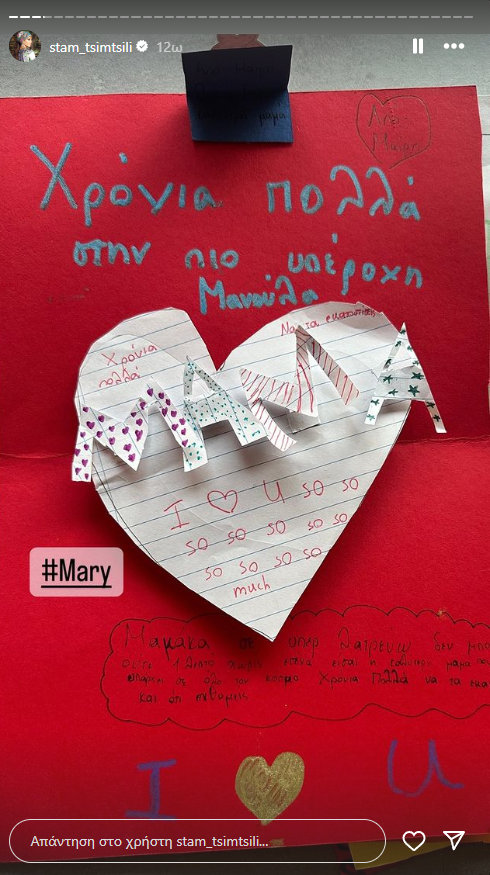 stam_tsimtsili 12ω
Από
Μαίρη
Χρόνια πολλά
στην πιο υπέροχη
Μανούλα
Χρόνια
πολλά
Να τα εκατοστήσεις
ΜΑΜΑ
I ♡ U so so
so so so so so
so so so so
much
#Mary
Μαμάκα σε υπερ λατρευω δεν μπο
ούτε 1 λεπτό χωρίς εσένα είσαι η καλύτερη μαμά που
υπάρχει σε όλο τον κόσμο Χρόνια Πολλά να τα εκα
και ότι επιθυμείς
I U
Απάντηση στο χρήστη stam_tsimtsili...